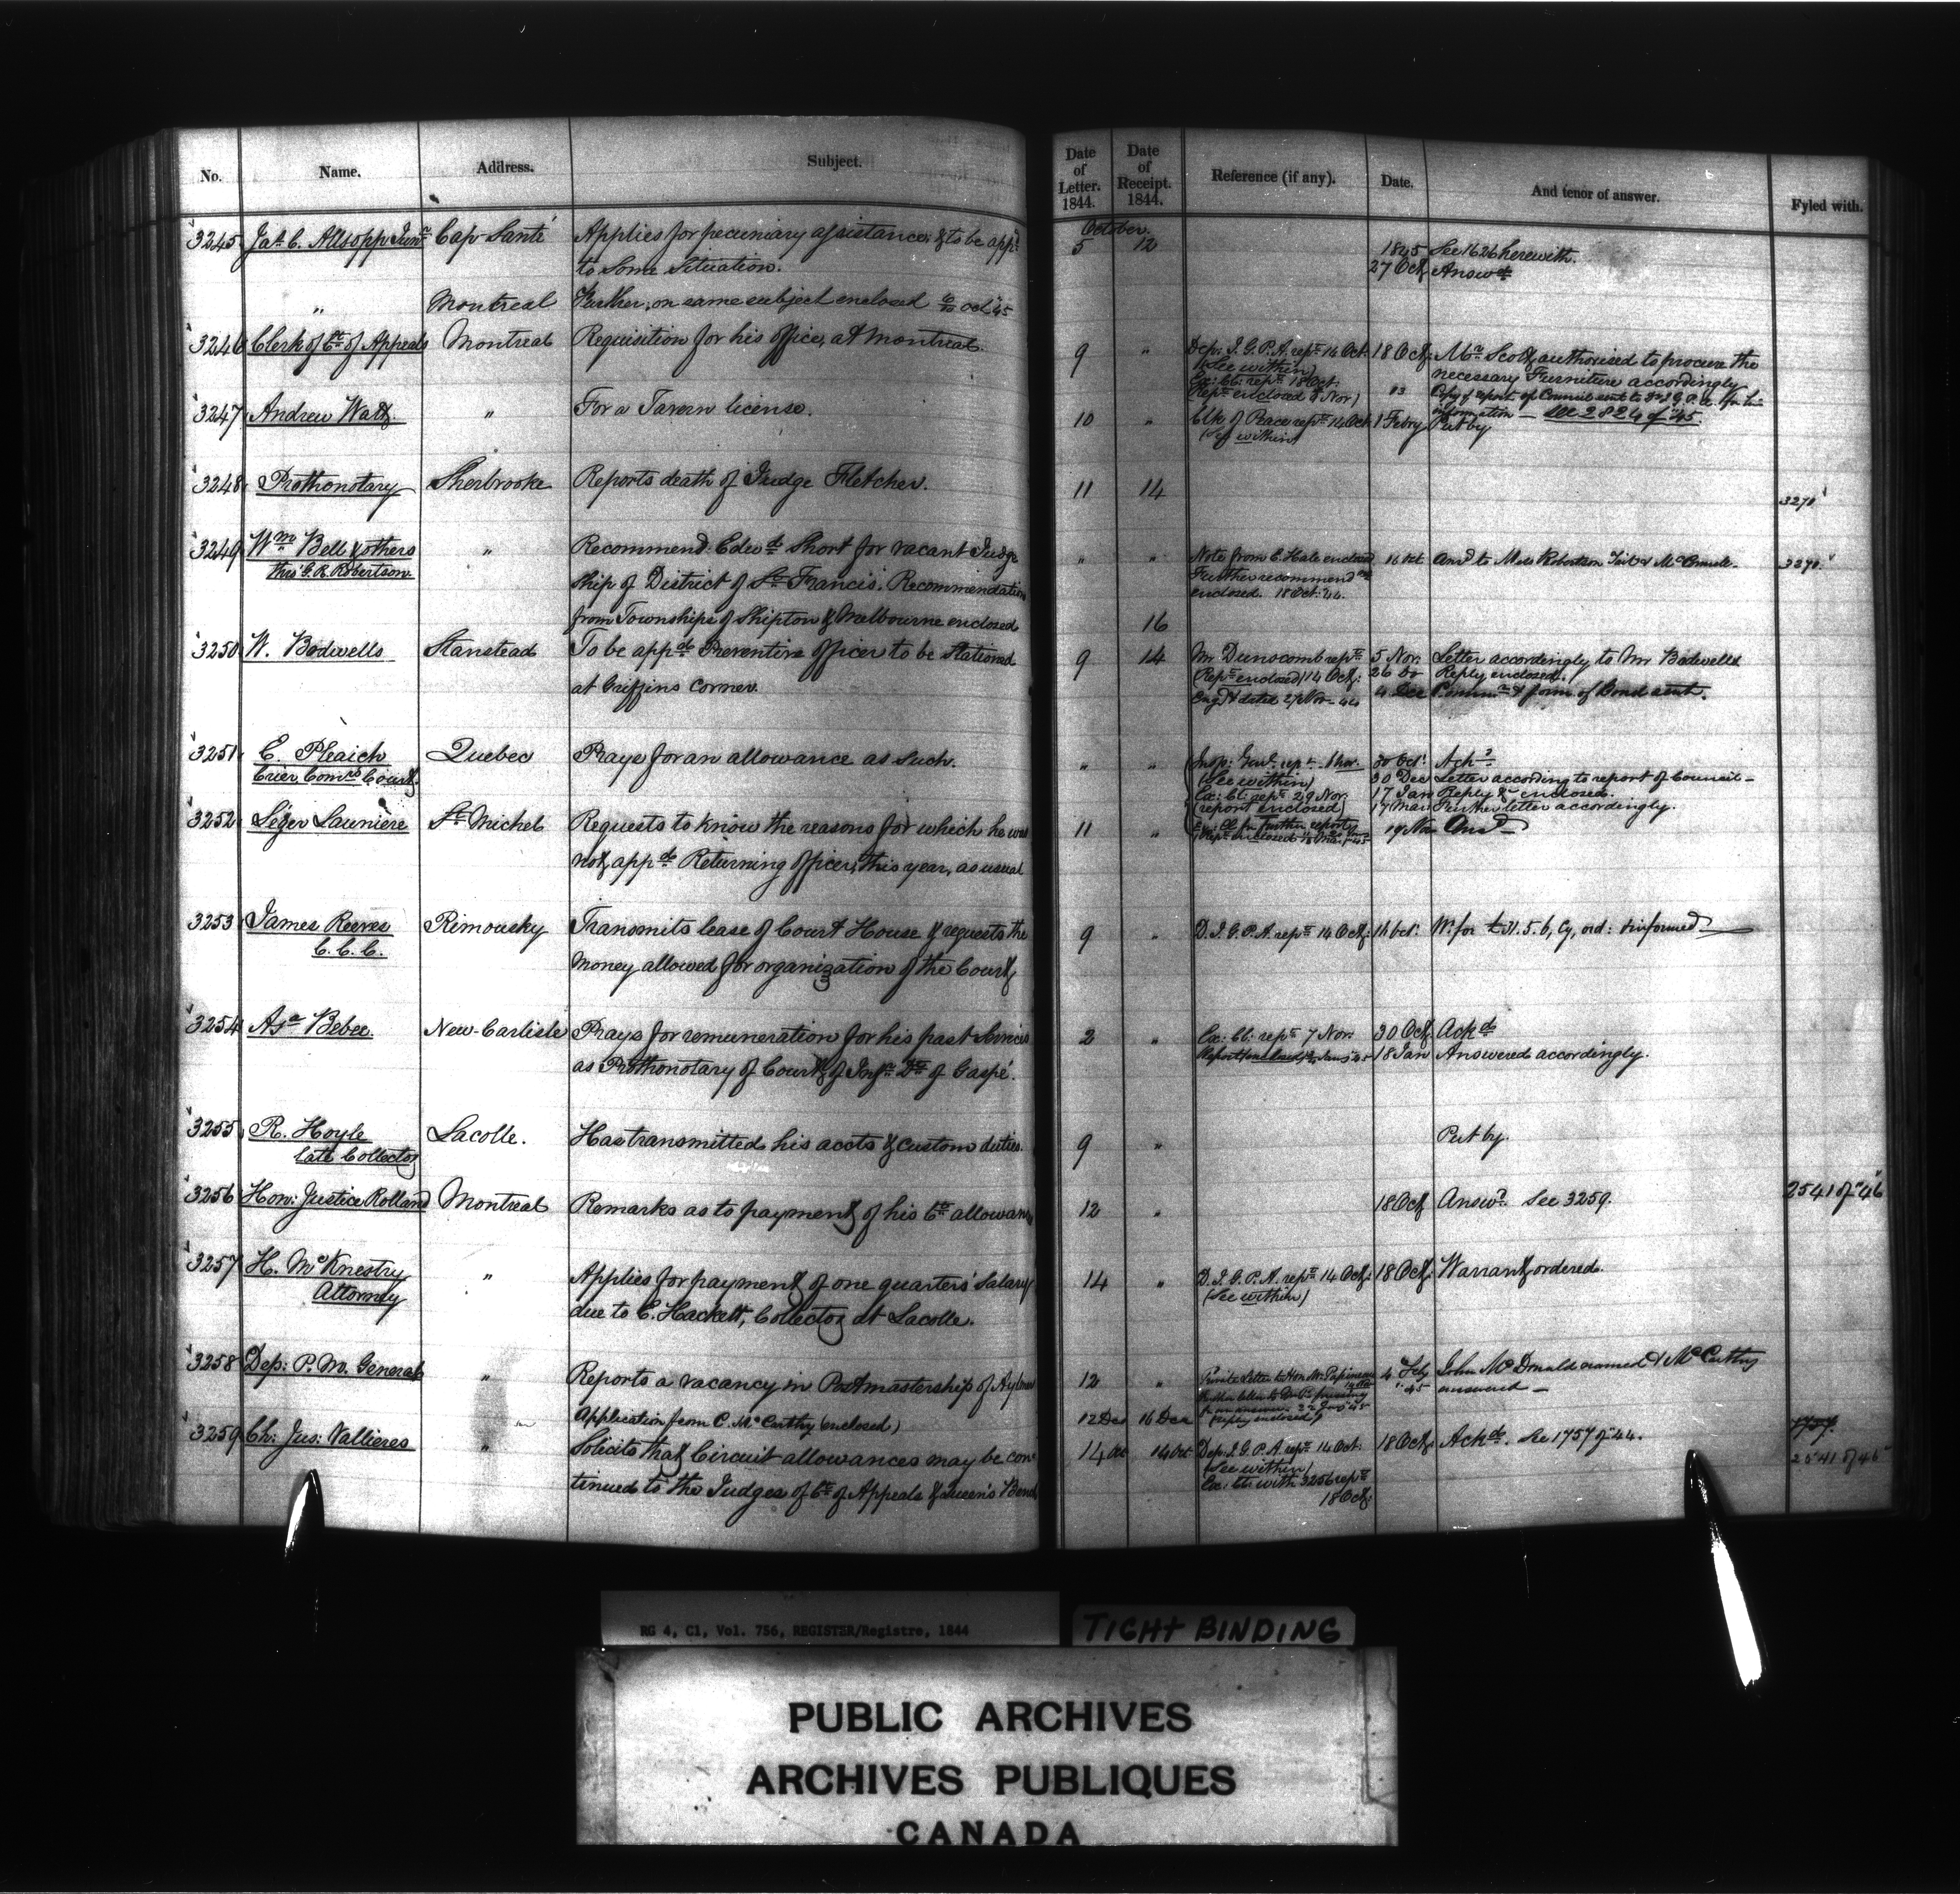 No. Name. Address. Subject. Date of Letter. 1844. Date of Receipt. 1844. Reference (if any). Date. And tenor of answer. Fyled with.
October.
3245 Jas. C. Allsopp Junr. Cap Santé Applies for pecuniary assistance & to be appd. 5 12 1845 See 1626 herewith.
to some situation. 27 Oct. Answd.
" Montreal Further, on same subject enclosed Oct 45
3246 Clerk of Ct. of Appeals Montreal Requisition for his office, at Montreal. 9 " Dep: I. G. P. A. rept. 14 Oct. 18 Oct. Mr. Scott authorised to procure the
(See within) necessary Furniture accordingly
Ex: Cl: rept. 18 Oct.
Rept. enclosed 8 Nov) Copy of report of Council sent to
information — See 2824 of 45.
3247 Andrew Watt " For a Tavern license. 10 " Clk of Peace rept. 14 Oct 1 Febry Put by
(See within)
3248 Prothonotary Sherbrooke Reports death of Judge Fletcher. 11 14 3270
3249 Wm. Bell & others " Recommend Edwd. Short for vacant Judge " " Note from E. Hale enclosed 16 Oct Ansd. to Mess Robertson 3270
thro' G. R. Robertson ship of District of St. Francis. Recommendation Further recommendn.
enclosed. 18 Oct: 44.
from Townships of Shipton & Melbourne enclosed 16
3250 W. Bodwells Stanstead To be appd. Preventive Officer to be stationed 9 14 Mr Dunscomb rept. 5 Nov. Letter accordingly to Mr Bodwells
at Griffins corner. Rept. enclosed 14 Oct. 26 do Reply enclosed.
dated 27 Nov. 44 4 Dec form of Bond sent.
3251 E. Pleaich Quebec Prays for an allowance as such. " " Insp: Genl. rept. 1 Nov. 30 Oct. Ackd.
Crier Comrs Court (See within) 30 Dec Letter according to report of Council —
Ex: Cl: rept. 29 Nov. 17 Jan Reply & enclosed.
(report enclosed) 17 Mar Further letter accordingly.
3252 Léger Launière St. Michel Requests to know the reasons for which he was 11 " 19 Nov Ansd.
Ex: Cl for further report
not appd. Returning officer, this year, as usual
3253 James Reeves Rimousky Transmits lease of Court House & requests the 9 " D. I. G. P. A. rept. 14 Oct. 16 Oct. Wt. for
C. C. C. money allowed for organization of the Court
3254 Asa Bebee New Carlisle Prays for remuneration for his past services 2 " Ex: Cl: rept. 7 Nov. 30 Oct. Ackd.
as Prothonotary of Court of Infr. Dt. of Gaspé. 18 Jan Answered accordingly.
3255 R. Hoyle Lacolle. Has transmitted his accts & custom duties. 9 " Put by.
late Collector
3256 Hon: Justice Rolland Montreal Remarks as to payment of his Ct. allowance 12 " 18 Oct Answd. See 3259. 2541 of 46
3257 H. McKnestry " Applies for payment of one quarters' Salary 14 " D. I. G. P. A. rept. 14 Oct. 18 Oct. Warrant ordered.
Attorney due to E. Hackett, Collector at Lacolle. (See within)
3258 Dep: P. M. General " Reports a vacancy in Postmastership of Aylmer 12 " Private Letter to Hon Mr. Papineau 4 Feby 45 John McDonald named & McCarthy
answered —
Application from C. McCarthy (enclosed) 12 Dec 16 Dec (reply enclosed)
3259 Ch: Jus: Vallieres " Solicits that Circuit allowances may be con- 14 Oct 14 Oct Dep. I. G. P. A. rept. 14 Oct. 18 Oct. Ackd. See 1757 of 44. 2541 of 46
(See within)
tinued to the Judges of Ct. of Appeals & Queen's Bench Ex: Cl: with 3256 rept.
18 Oct.
RG 4, C1, Vol. 756, REGISTER/Registre, 1844
TIGHT BINDING
PUBLIC ARCHIVES
ARCHIVES PUBLIQUES
CANADA